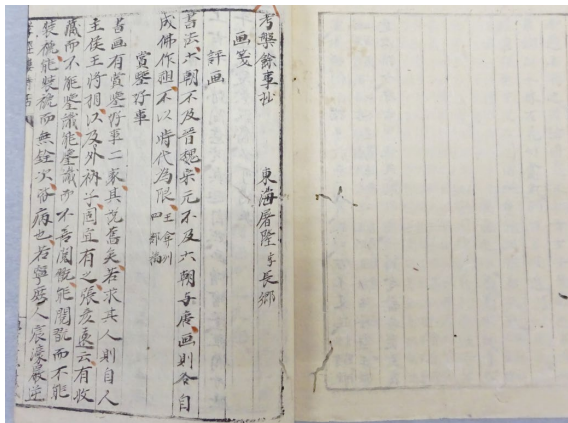 考槃餘事抄 東海屠隆字長卿
画箋
評画
書法六朝不及晋魏宋元不及六朝与唐画則各自
成佛作祖不以時代為限 王弇州
四部稿
賞鑒好事
書画有賞鑒好事二家其説舊矣若求其人則自人
主侯王将相以及外衲子固宜有之張彦遠云有收
藏而不能鑒識能鑒識而不善閲翫能閲翫而不能
裝褫能裝褫而無銓次皆病也若寧庶人宸濠嚴逆